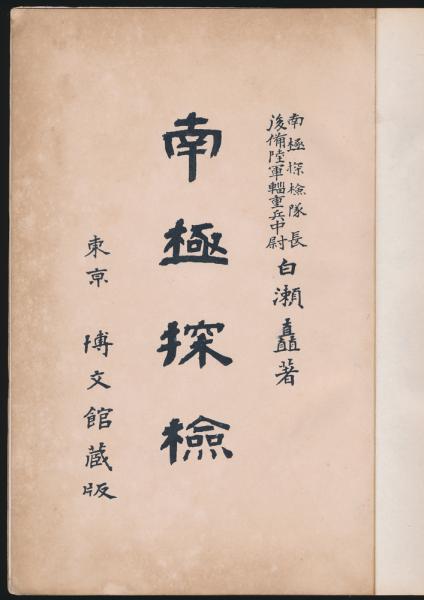 南極探檢隊長
後備陸軍輜重兵中尉
白瀬矗著
南極探檢
東京 博文館蔵版